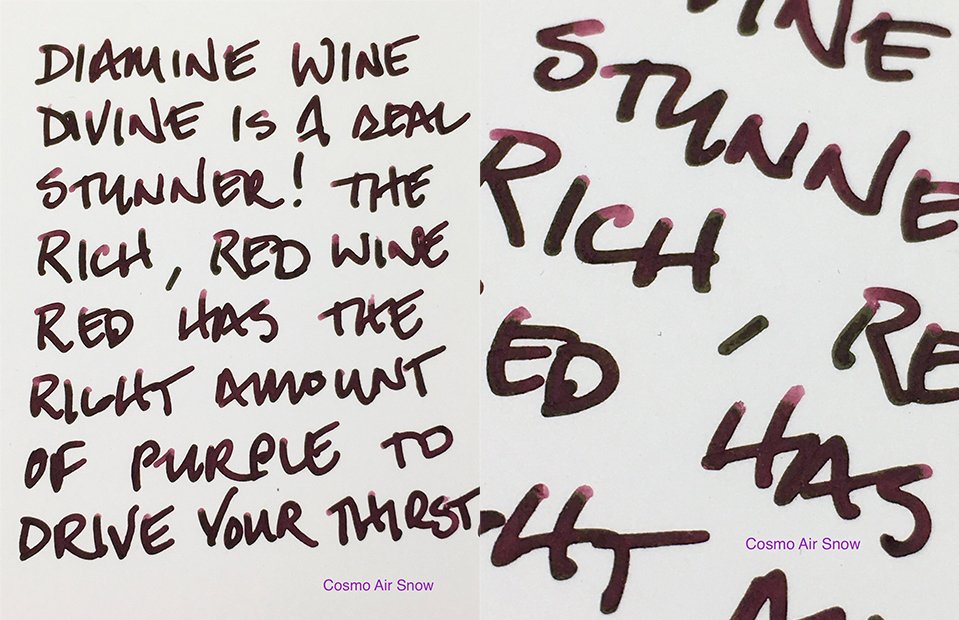 DIAMINE WINE
DIVINE IS A REAL
STUNNER! THE
RICH, RED WINE
RED HAS THE
RIGHT AMOUNT
OF PURPLE TO
DRIVE YOUR THIRST
Cosmo Air Snow
INE
STUNNE
RICH
ED , RE
HAS
HT
Cosmo Air Snow